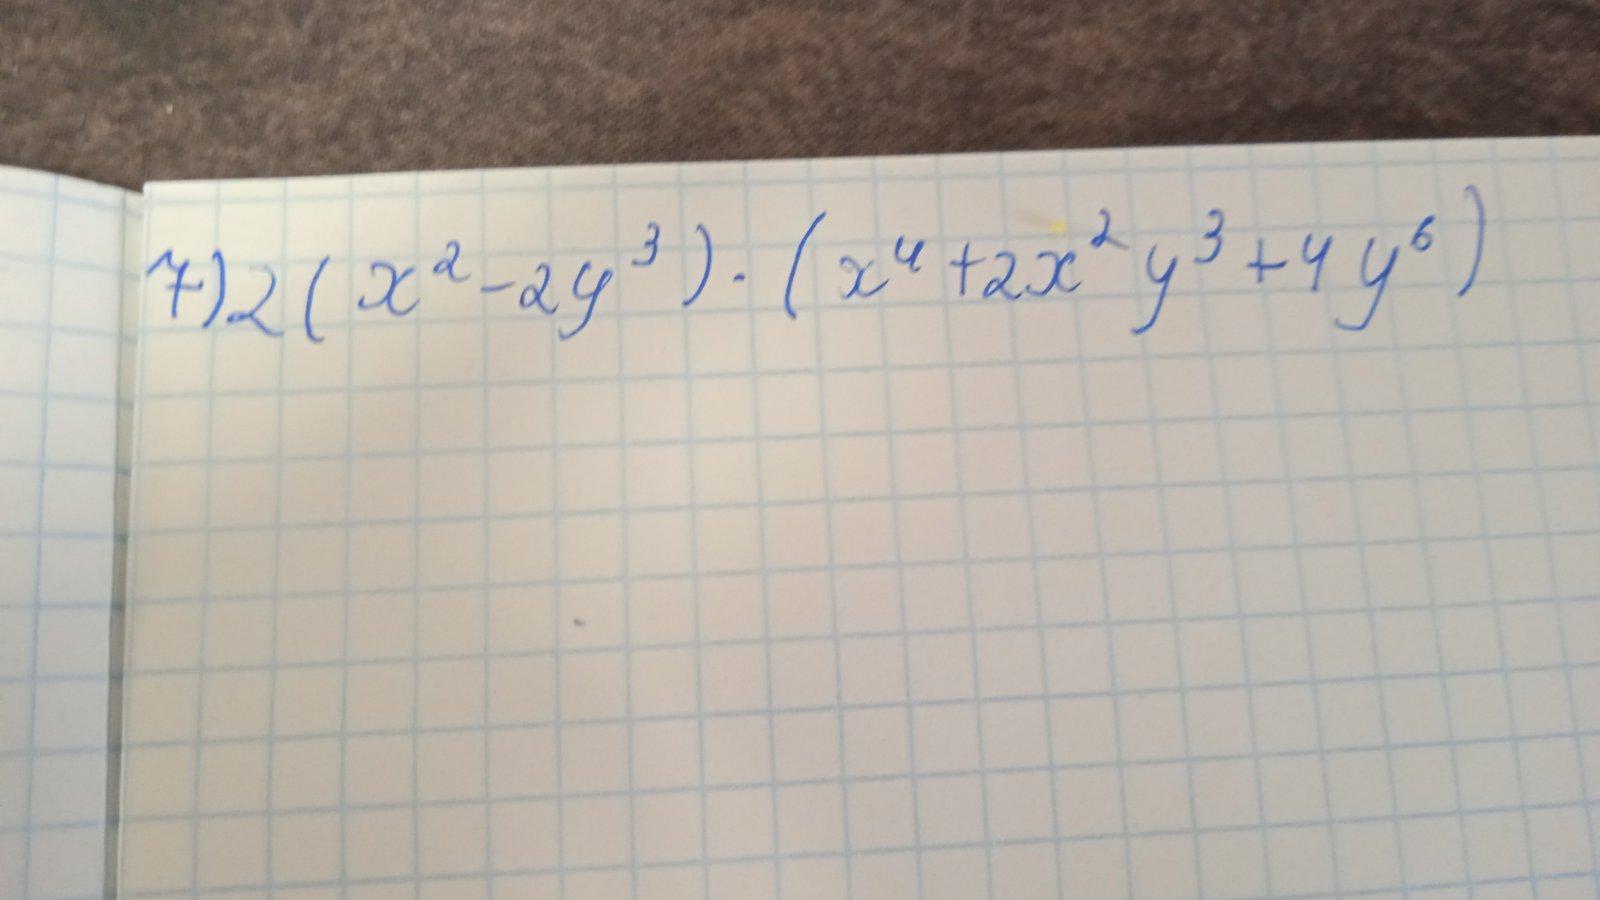 7) 2(x² - 2y³) · (x⁴ + 2x²y³ + 4y⁶)